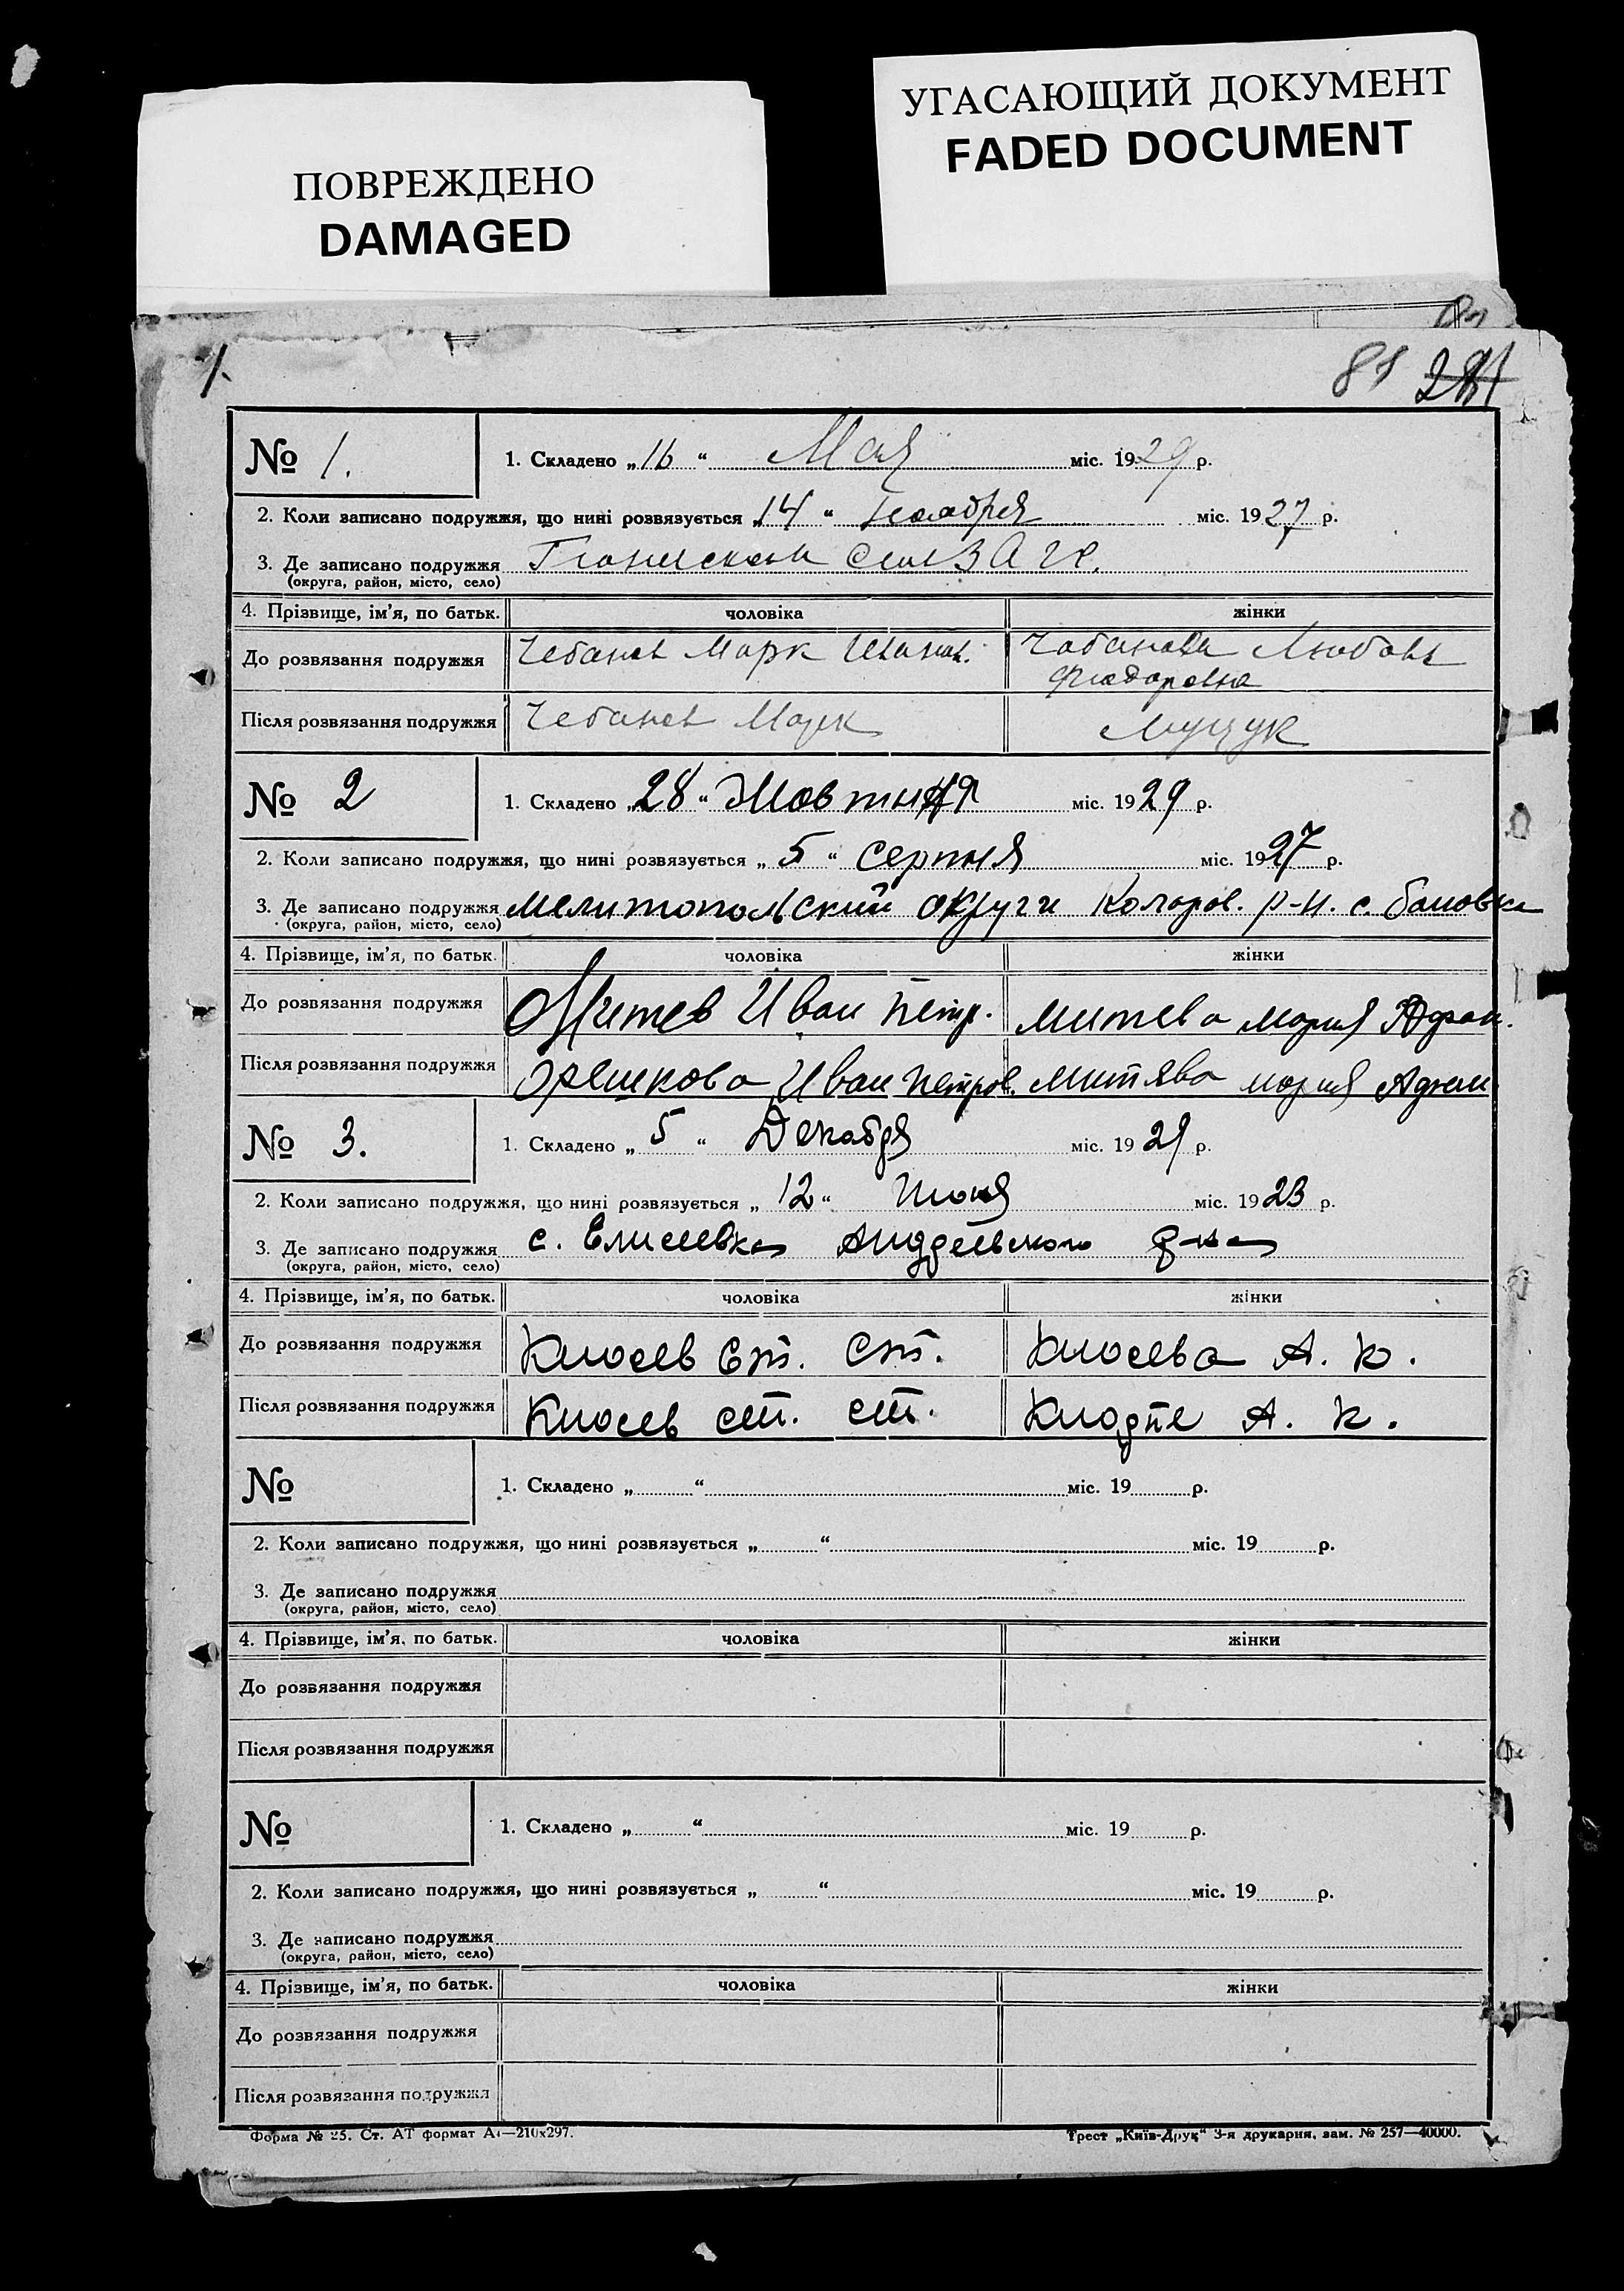 ПОВРЕЖДЕНО
DAMAGED
УГАСАЮЩИЙ ДОКУМЕНТ
FADED DOCUMENT
1.
81
№ 1.
1. Складено „16“ Мая міс. 1929 р.
2. Коли записано подружжя, що нині розвязується „14“ Ноября міс. 1927 р.
3. Де записано подружжя
(округа, район, місто, село)
4. Прізвище, ім'я, по батьк. чоловіка жінки
До розвязання подружжя Чебанов Марк Иванов. Чабанова Любовь
Фиодоровна
Після розвязання подружжя Чебанов Марк Мущук
№ 2
1. Складено „28“ Жовтня міс. 1929 р.
2. Коли записано подружжя, що нині розвязується „5“ серпня міс. 1927 р.
3. Де записано подружжя Мелитопольский округи Колоров. р-н. с. Бановка
(округа, район, місто, село)
4. Прізвище, ім'я, по батьк. чоловіка жінки
До розвязання подружжя Митев Иван Петр. Митева Мария
Після розвязання подружжя Орешкова Иван Петров. Митява Мария
№ 3.
1. Складено „5“ Декабря міс. 1929 р.
2. Коли записано подружжя, що нині розвязується „12“ Июня міс. 1923 р.
3. Де записано подружжя с. Елисеевка Андреевского р-на
(округа, район, місто, село)
4. Прізвище, ім'я, по батьк. чоловіка жінки
До розвязання подружжя Кюсев Ст. Ст. Кюсева А. К.
Після розвязання подружжя Кюсев Ст. Ст. Кюрпе А. К.
№
1. Складено „ “ міс. 19 р.
2. Коли записано подружжя, що нині розвязується „ “ міс. 19 р.
3. Де записано подружжя
(округа, район, місто, село)
4. Прізвище, ім'я, по батьк. чоловіка жінки
До розвязання подружжя
Після розвязання подружжя
№
1. Складено „ “ міс. 19 р.
2. Коли записано подружжя, що нині розвязується „ “ міс. 19 р.
3. Де записано подружжя
(округа, район, місто, село)
4. Прізвище, ім'я, по батьк. чоловіка жінки
До розвязання подружжя
Після розвязання подружжя
Форма № 25. Ст. АТ формат А4—210х297. Трест „Київ-Друк“ 3-я друкарня, зам. № 257—40000.